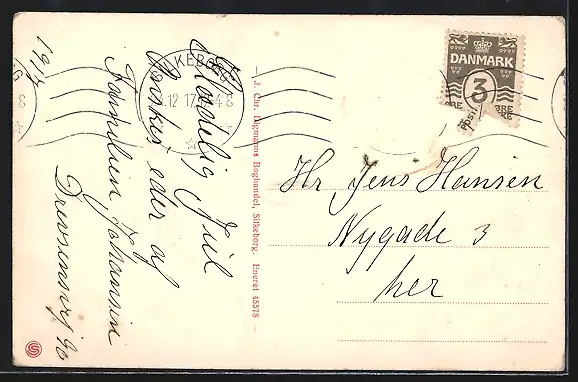 1917
Glædelig Jul
Ønskes eder af
Familien Johansen
J. Chr. Digmanns Boghandel, Silkeborg. Eneret 45578
DANMARK
3
ØRE ØRE
Hr Jens Hansen
Nygade 3
her